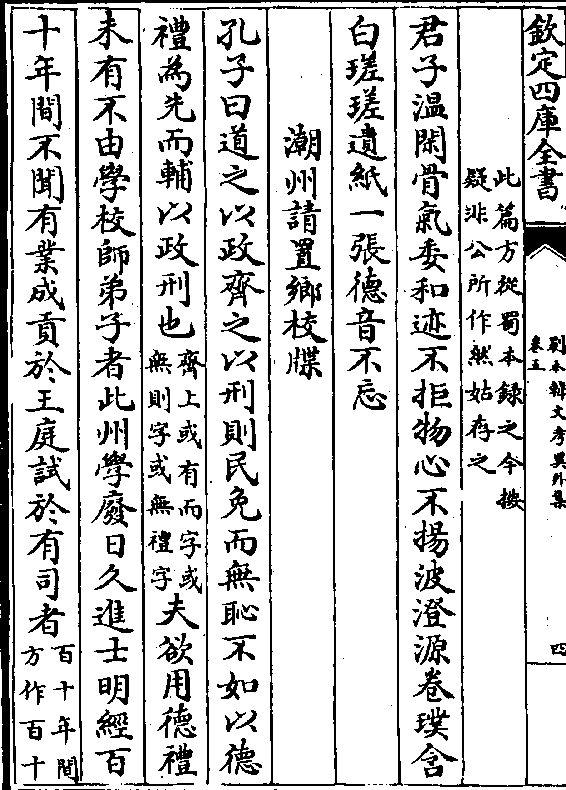 欽定四庫全書
別本韓文考異外集
卷五
四
此篇方從蜀本録之今按
疑非公所作然姑存之
君子溫閑骨氣委和迹不拒物心不揚波澄源卷璞含
白瑳瑳遺紙一張德音不忘
潮州請置鄉校牒
孔子曰道之以政齊之以刑則民免而無恥不如以德
禮為先而輔以政刑也
齊上或有而字或
無則字或無禮字
夫欲用德禮
未有不由學校師弟子者此州學廢日久進士明經百
十年間不聞有業成貢於王庭試於有司者
百十年間
方作百十